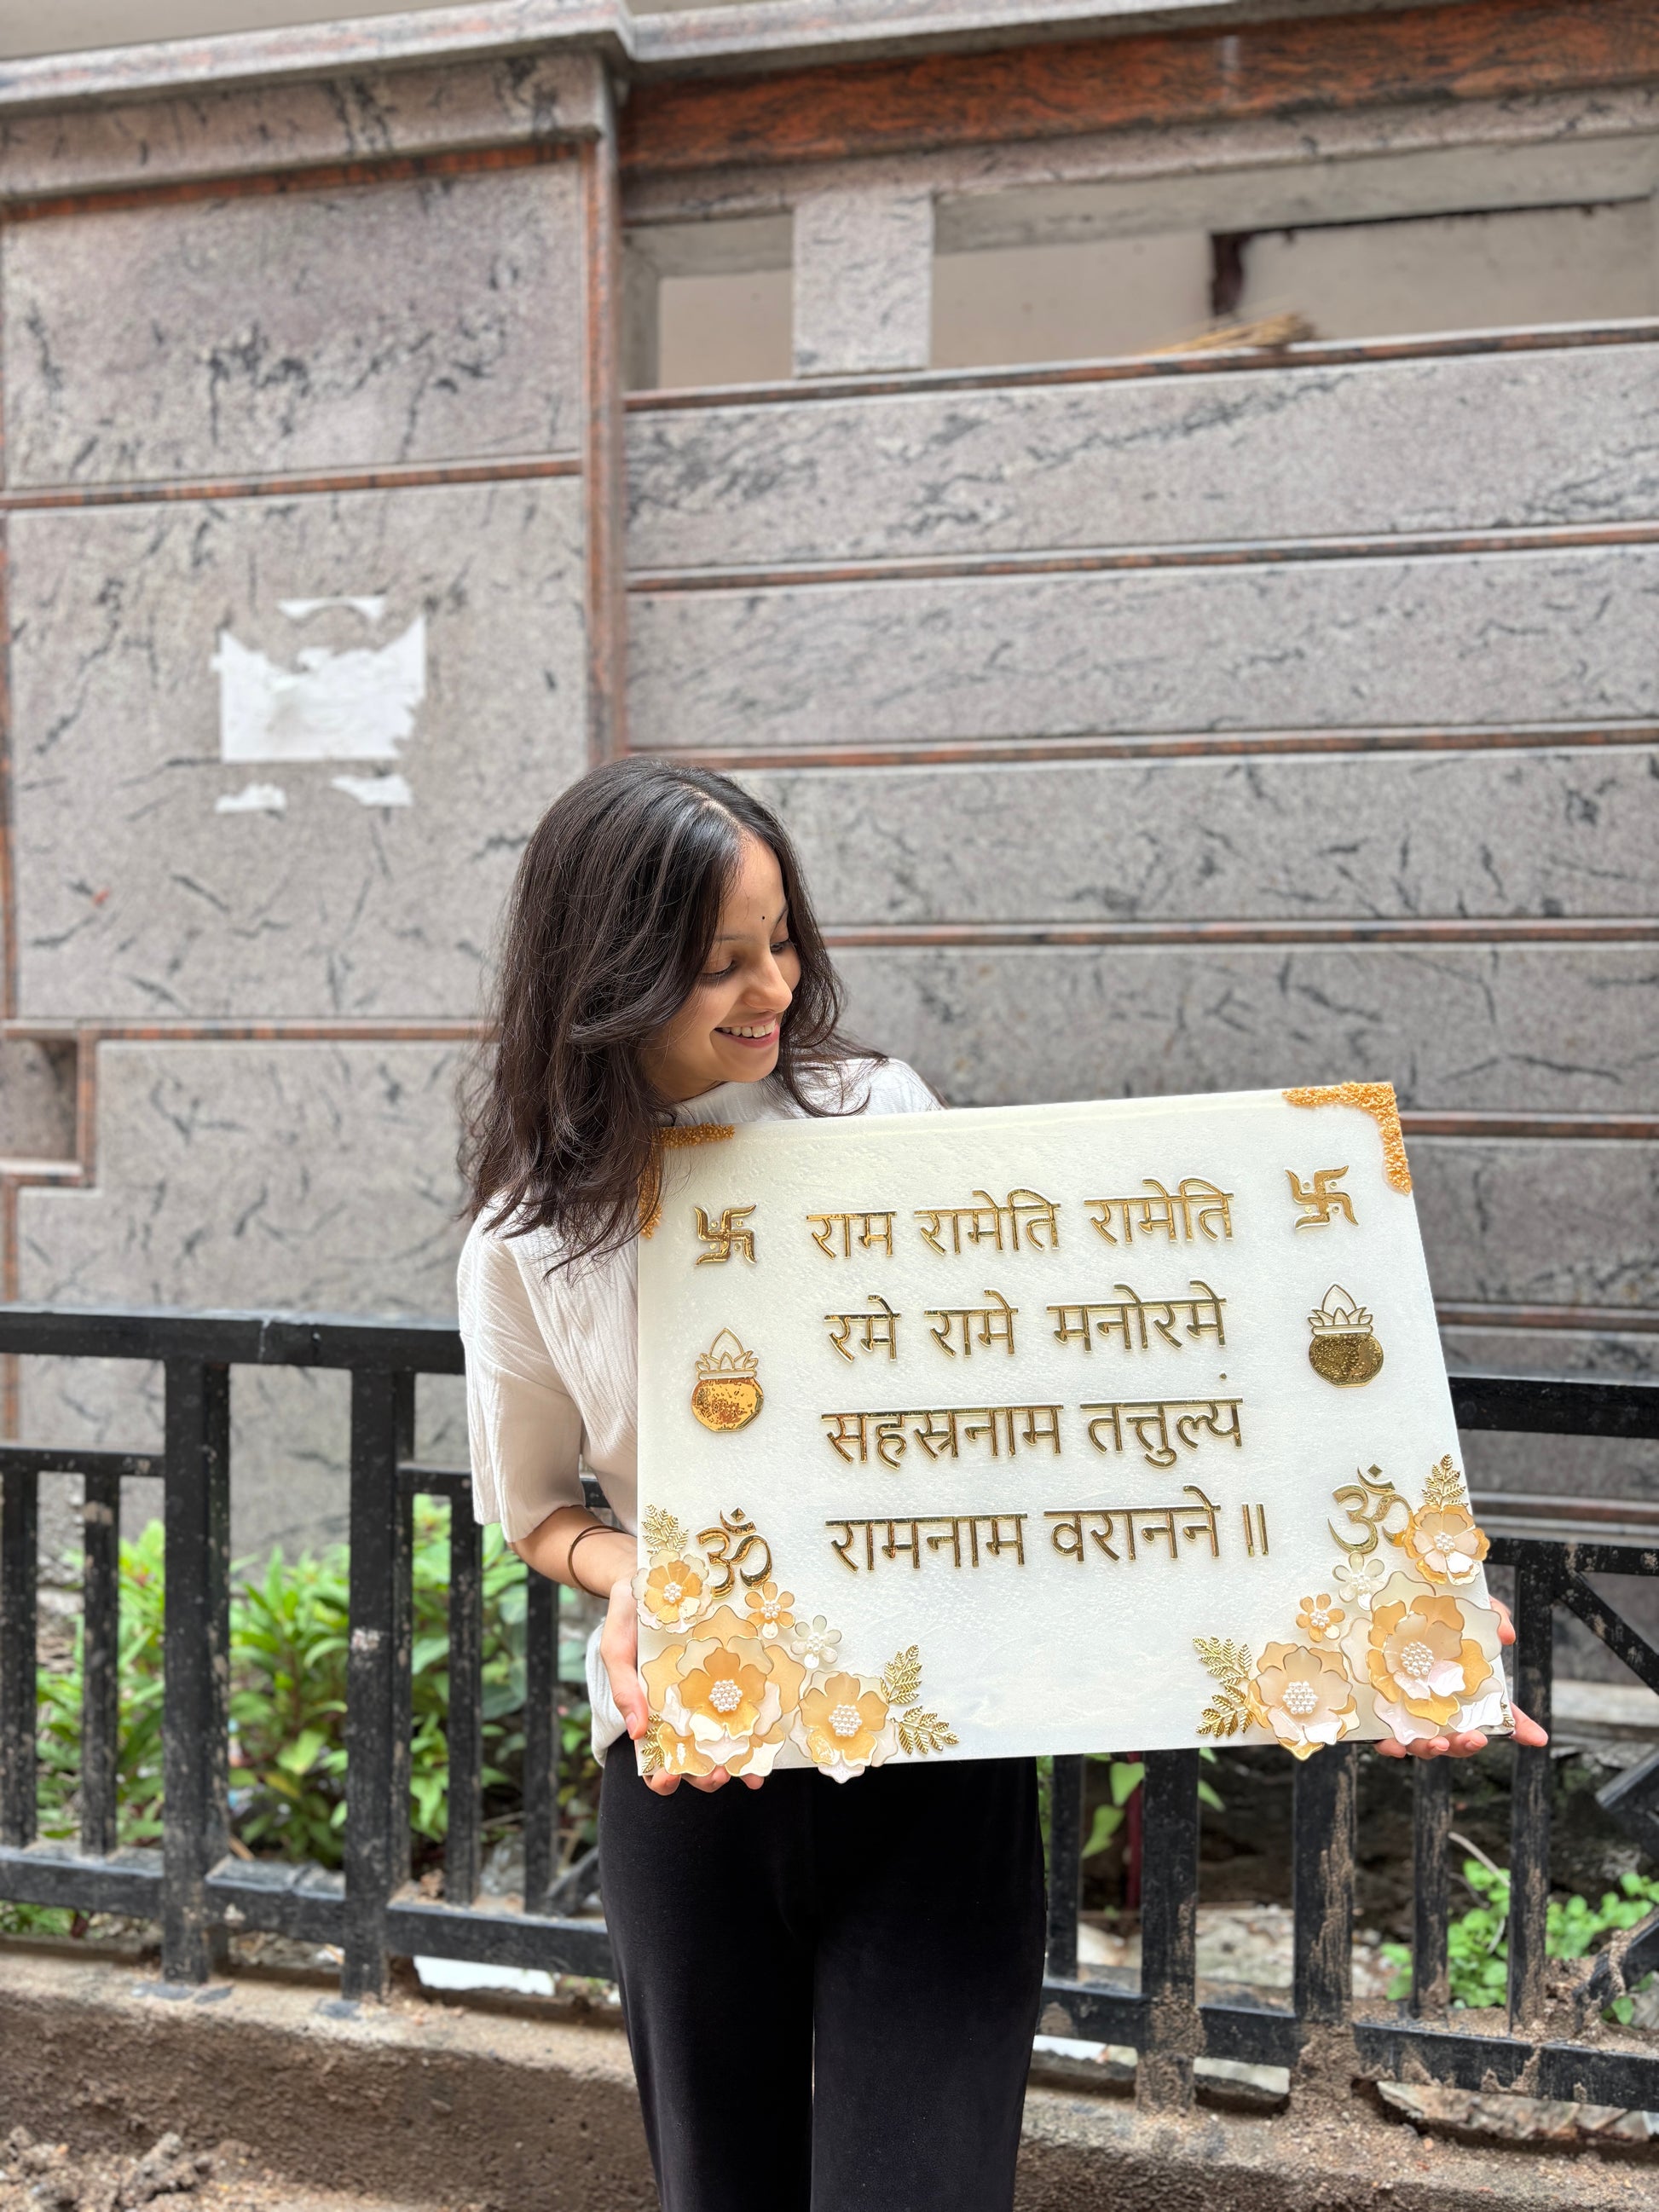 राम रामेति रामेति
रमे रामे मनोरमे
सहस्रनाम तत्तुल्यं
रामनाम वरानने ॥
ॐ ॐ